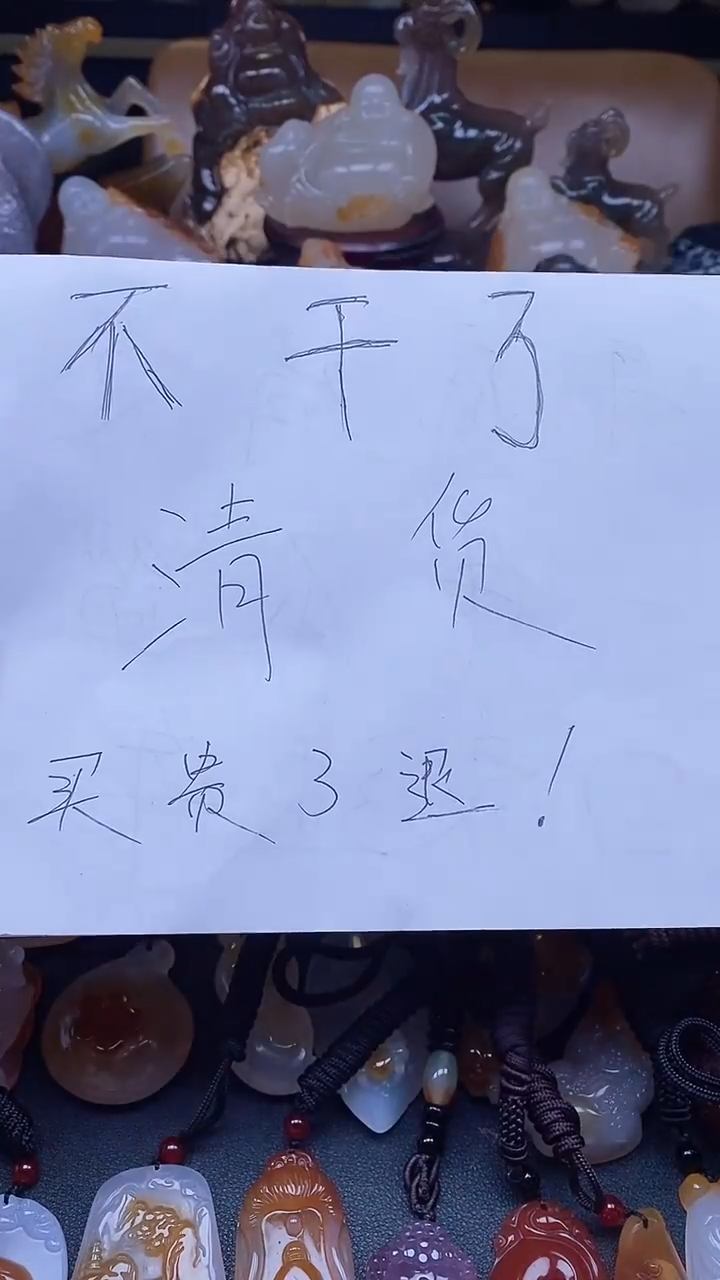 不干了
清货
买贵了退！